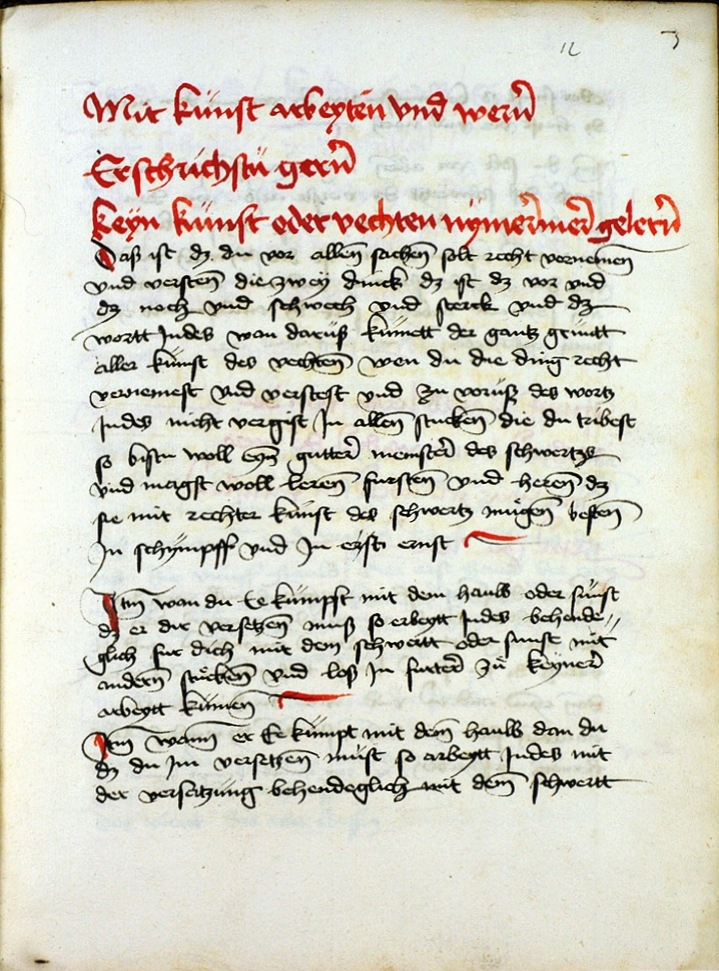 12 3
Mit kunst arbeyten vnd wern̄
Erschrichstu gern̄
keyn kunst oder vechten nymer̄mer̄ gelern̄
Das ist dz du vor allen̄ sachen̄ solt recht vornemen̄
vnd versten̄ die zwey dinck dz ist dz vor vnd
dz noch vnd schwech vnd sterck vnd dz
wortt Indes wan daruß kumett der gantz gruntt
aller kunst des vechten̄ wen du die ding recht
vernemest vnd verstest vnd zu voruß des wortz
Indes nicht vergist In allen̄ stucken̄ die du tribest
so bistu woll eyn̄ gutter̄ meinster̄ des schwertzs
vnd magst woll leren̄ fursten̄ vnd heren̄ dz
sie mit rechter kunst des schwertz mugen̄ besten̄
In schympff vnd In ernst
Itm̄ wan du Ee kumpst mit dem hauw oder sunst
dz er dir versetzen̄ muß so erbeytt Indes behende//
glich fur dich mit dem schwertt oder sunst mit
andern̄ stucken̄ vnd loß In furter̄ zu keyner̄
arbeytt kumen̄
Itm̄ wann̄ er Ee kumpt mit dem̄ hauw dan du
dz du Im versetzen̄ must so arbeytt Indes mit
der versatzung behendeglich mit dem̄ schwertt